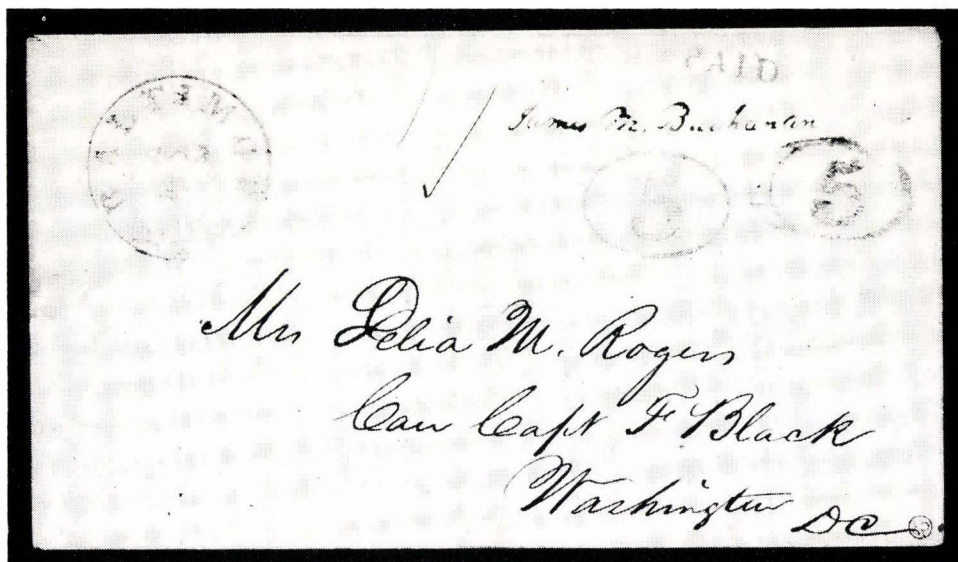 James M. Buchanan
5
Mrs Delia M. Rogers
Care Capt F. Black
Washington
DC